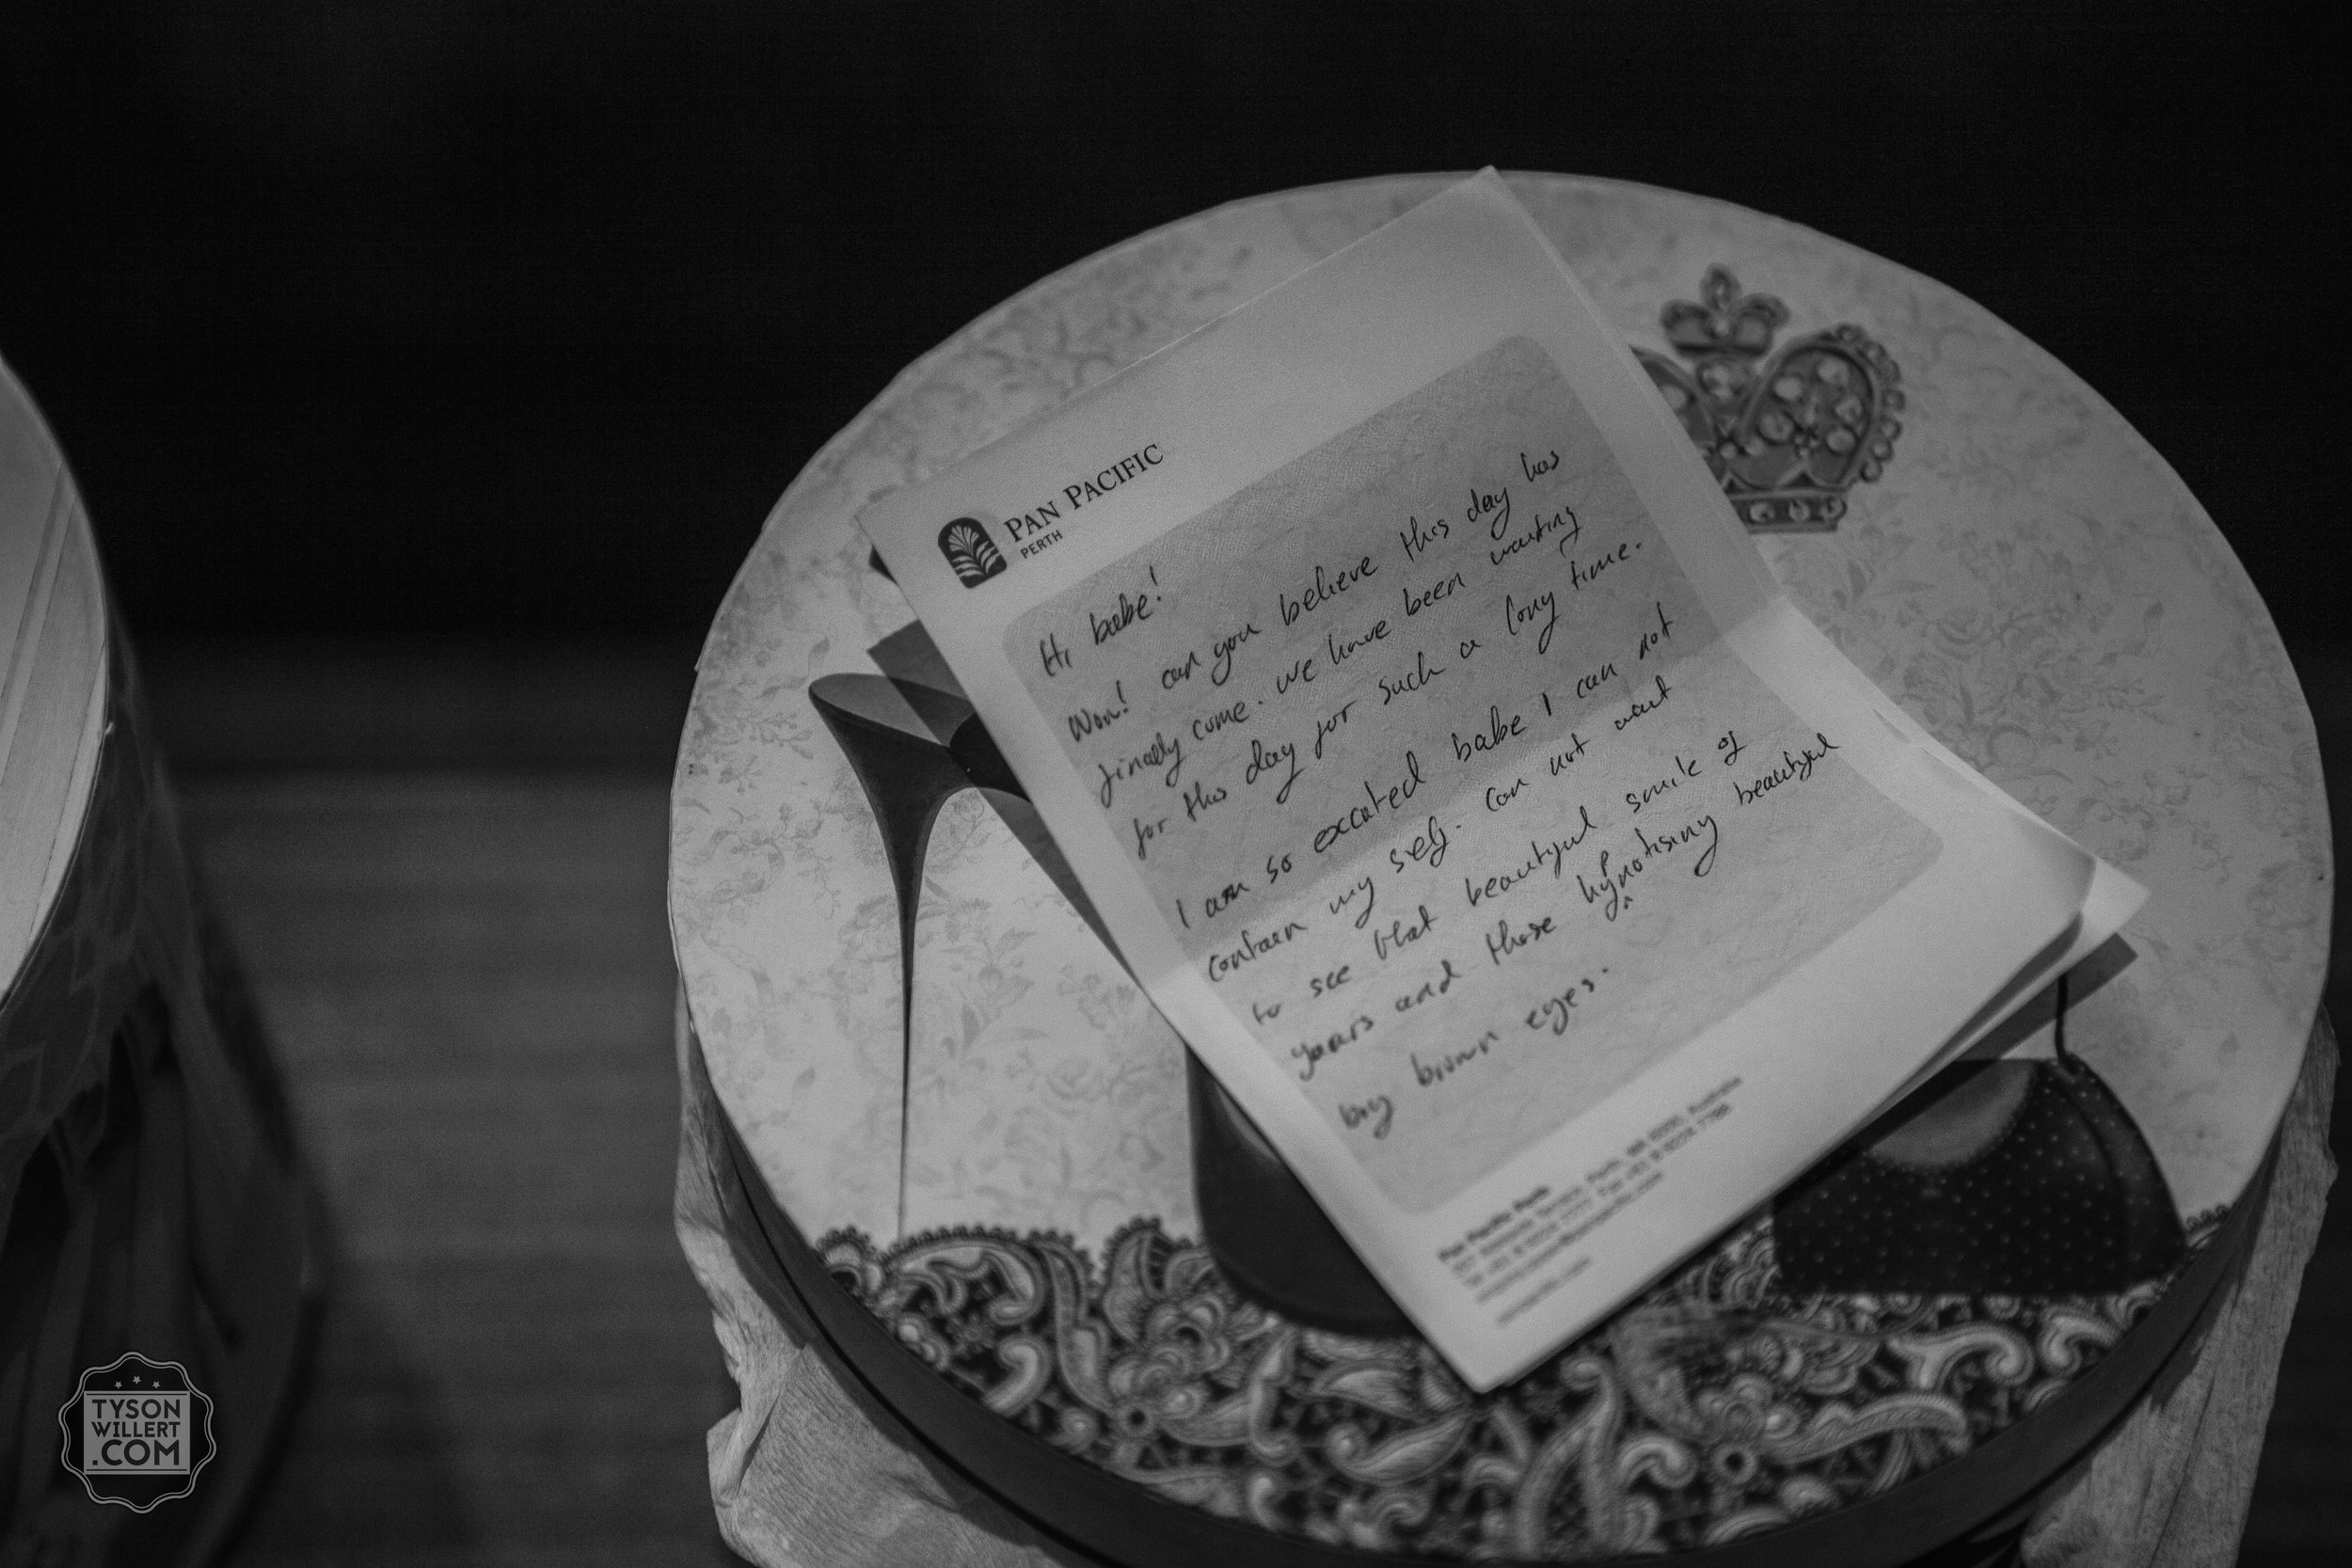 PAN PACIFIC
PERTH
Hi babe!
Wow! can you believe this day has
finally come. we have been waiting
for this day for such a long time.
I am so excated babe I can not
contain my self. can not wait
to see that beautiful smile of
yours and those hypnotising beautiful
big brown eyes.
Pan Pacific Perth
TYSON
WILLERT
.COM